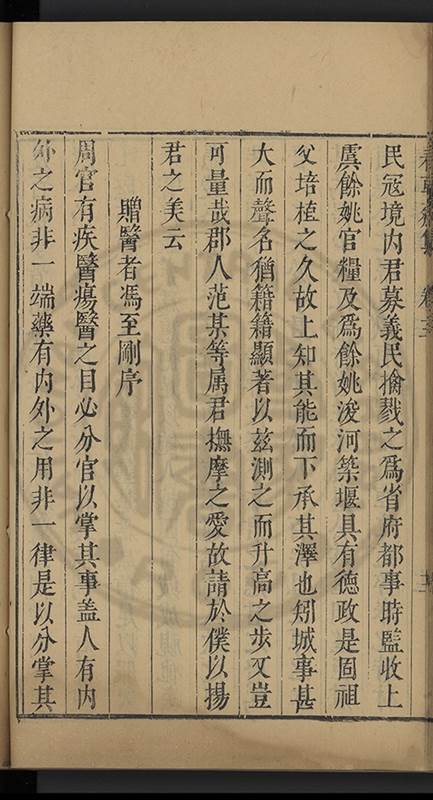 民冦境内君募義民擒戮之爲省府都事時監收上
虞餘姚官糧及爲餘姚浚河築堰具有徳政是固祖
父培植之久故上知其能而下承其澤也矧城事甚
大而聲名猶籍籍顯著以兹測之而升高之歩又豈
可量哉郡人范某等属君撫摩之愛故請於僕以揚
君之美云
贈醫者馮至剛序
周官有疾醫瘍醫之目必分官以掌其事盖人有内
外之病非一端藥有内外之用非一律是以分掌其